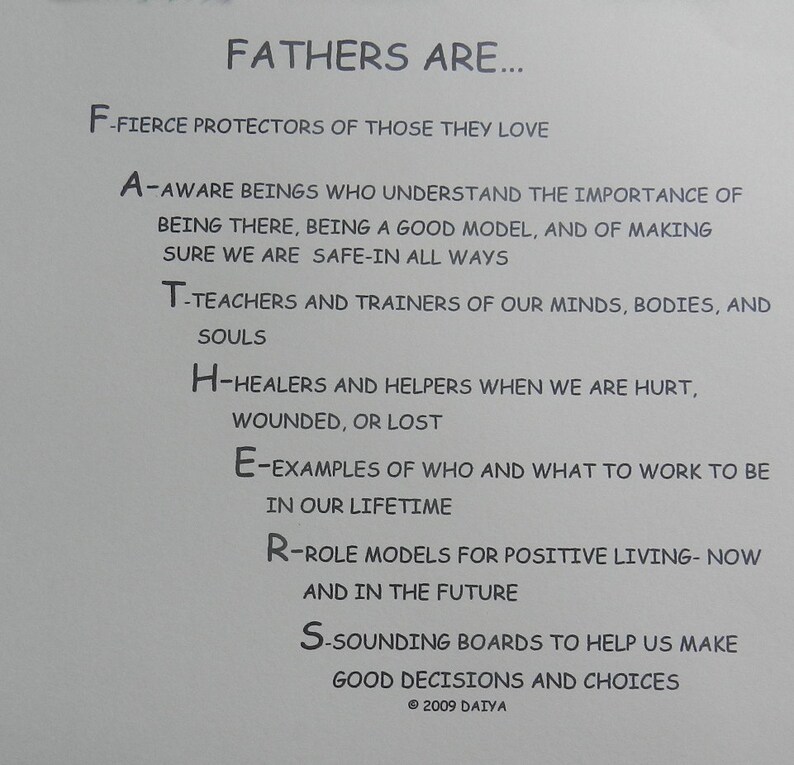 FATHERS ARE...
F-FIERCE PROTECTORS OF THOSE THEY LOVE
A-AWARE BEINGS WHO UNDERSTAND THE IMPORTANCE OF
BEING THERE, BEING A GOOD MODEL, AND OF MAKING
SURE WE ARE SAFE-IN ALL WAYS
T-TEACHERS AND TRAINERS OF OUR MINDS, BODIES, AND
SOULS
H-HEALERS AND HELPERS WHEN WE ARE HURT,
WOUNDED, OR LOST
E-EXAMPLES OF WHO AND WHAT TO WORK TO BE
IN OUR LIFETIME
R-ROLE MODELS FOR POSITIVE LIVING- NOW
AND IN THE FUTURE
S-SOUNDING BOARDS TO HELP US MAKE
GOOD DECISIONS AND CHOICES
© 2009 DAIYA